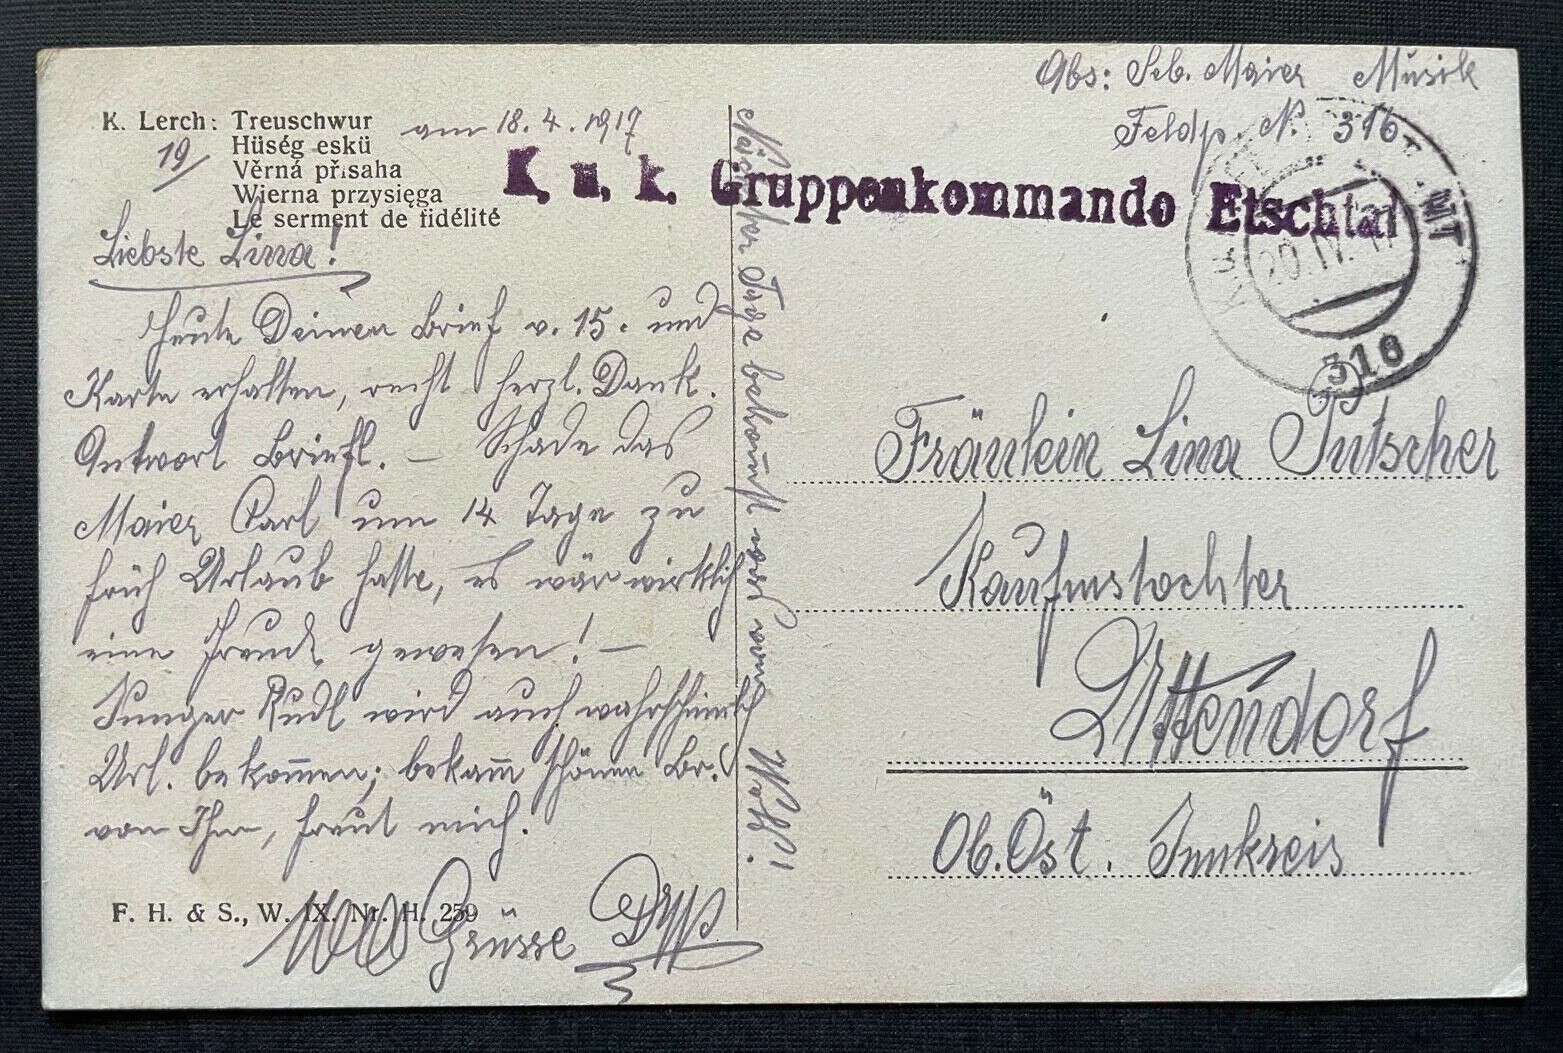 K. Lerch: Treuschwur
Hüség eskü
Věrná přísaha
Wierna przysięga
Le serment de fidélité
19/
am 18. 4. 1917
Abs: Seb. Maier Musik
Feldp. N. 316
K. u. k. Gruppenkommando Etschtal
20. IV. 17
316
Liebste Lina!
Heute Deinen Brief v. 15. und
Karte erhalten, recht herzl. Dank.
Antwort briefl. — Schade das
Maier Carl um 14 Tage zu
früh Urlaub hatte, es wär wirklich
eine Freude gewesen! —
Junger Rudl wird auch wahrscheinlich
Url. bekom̄en; bekam̄ schönen Br.
von Ihm, freut mich.
Grüsse
Tage
F. H. & S., W. IX. Nr. H. 259
Fräulein Lina
Kaufmstochter
Uttendorf
Ob. Öst. Innkreis